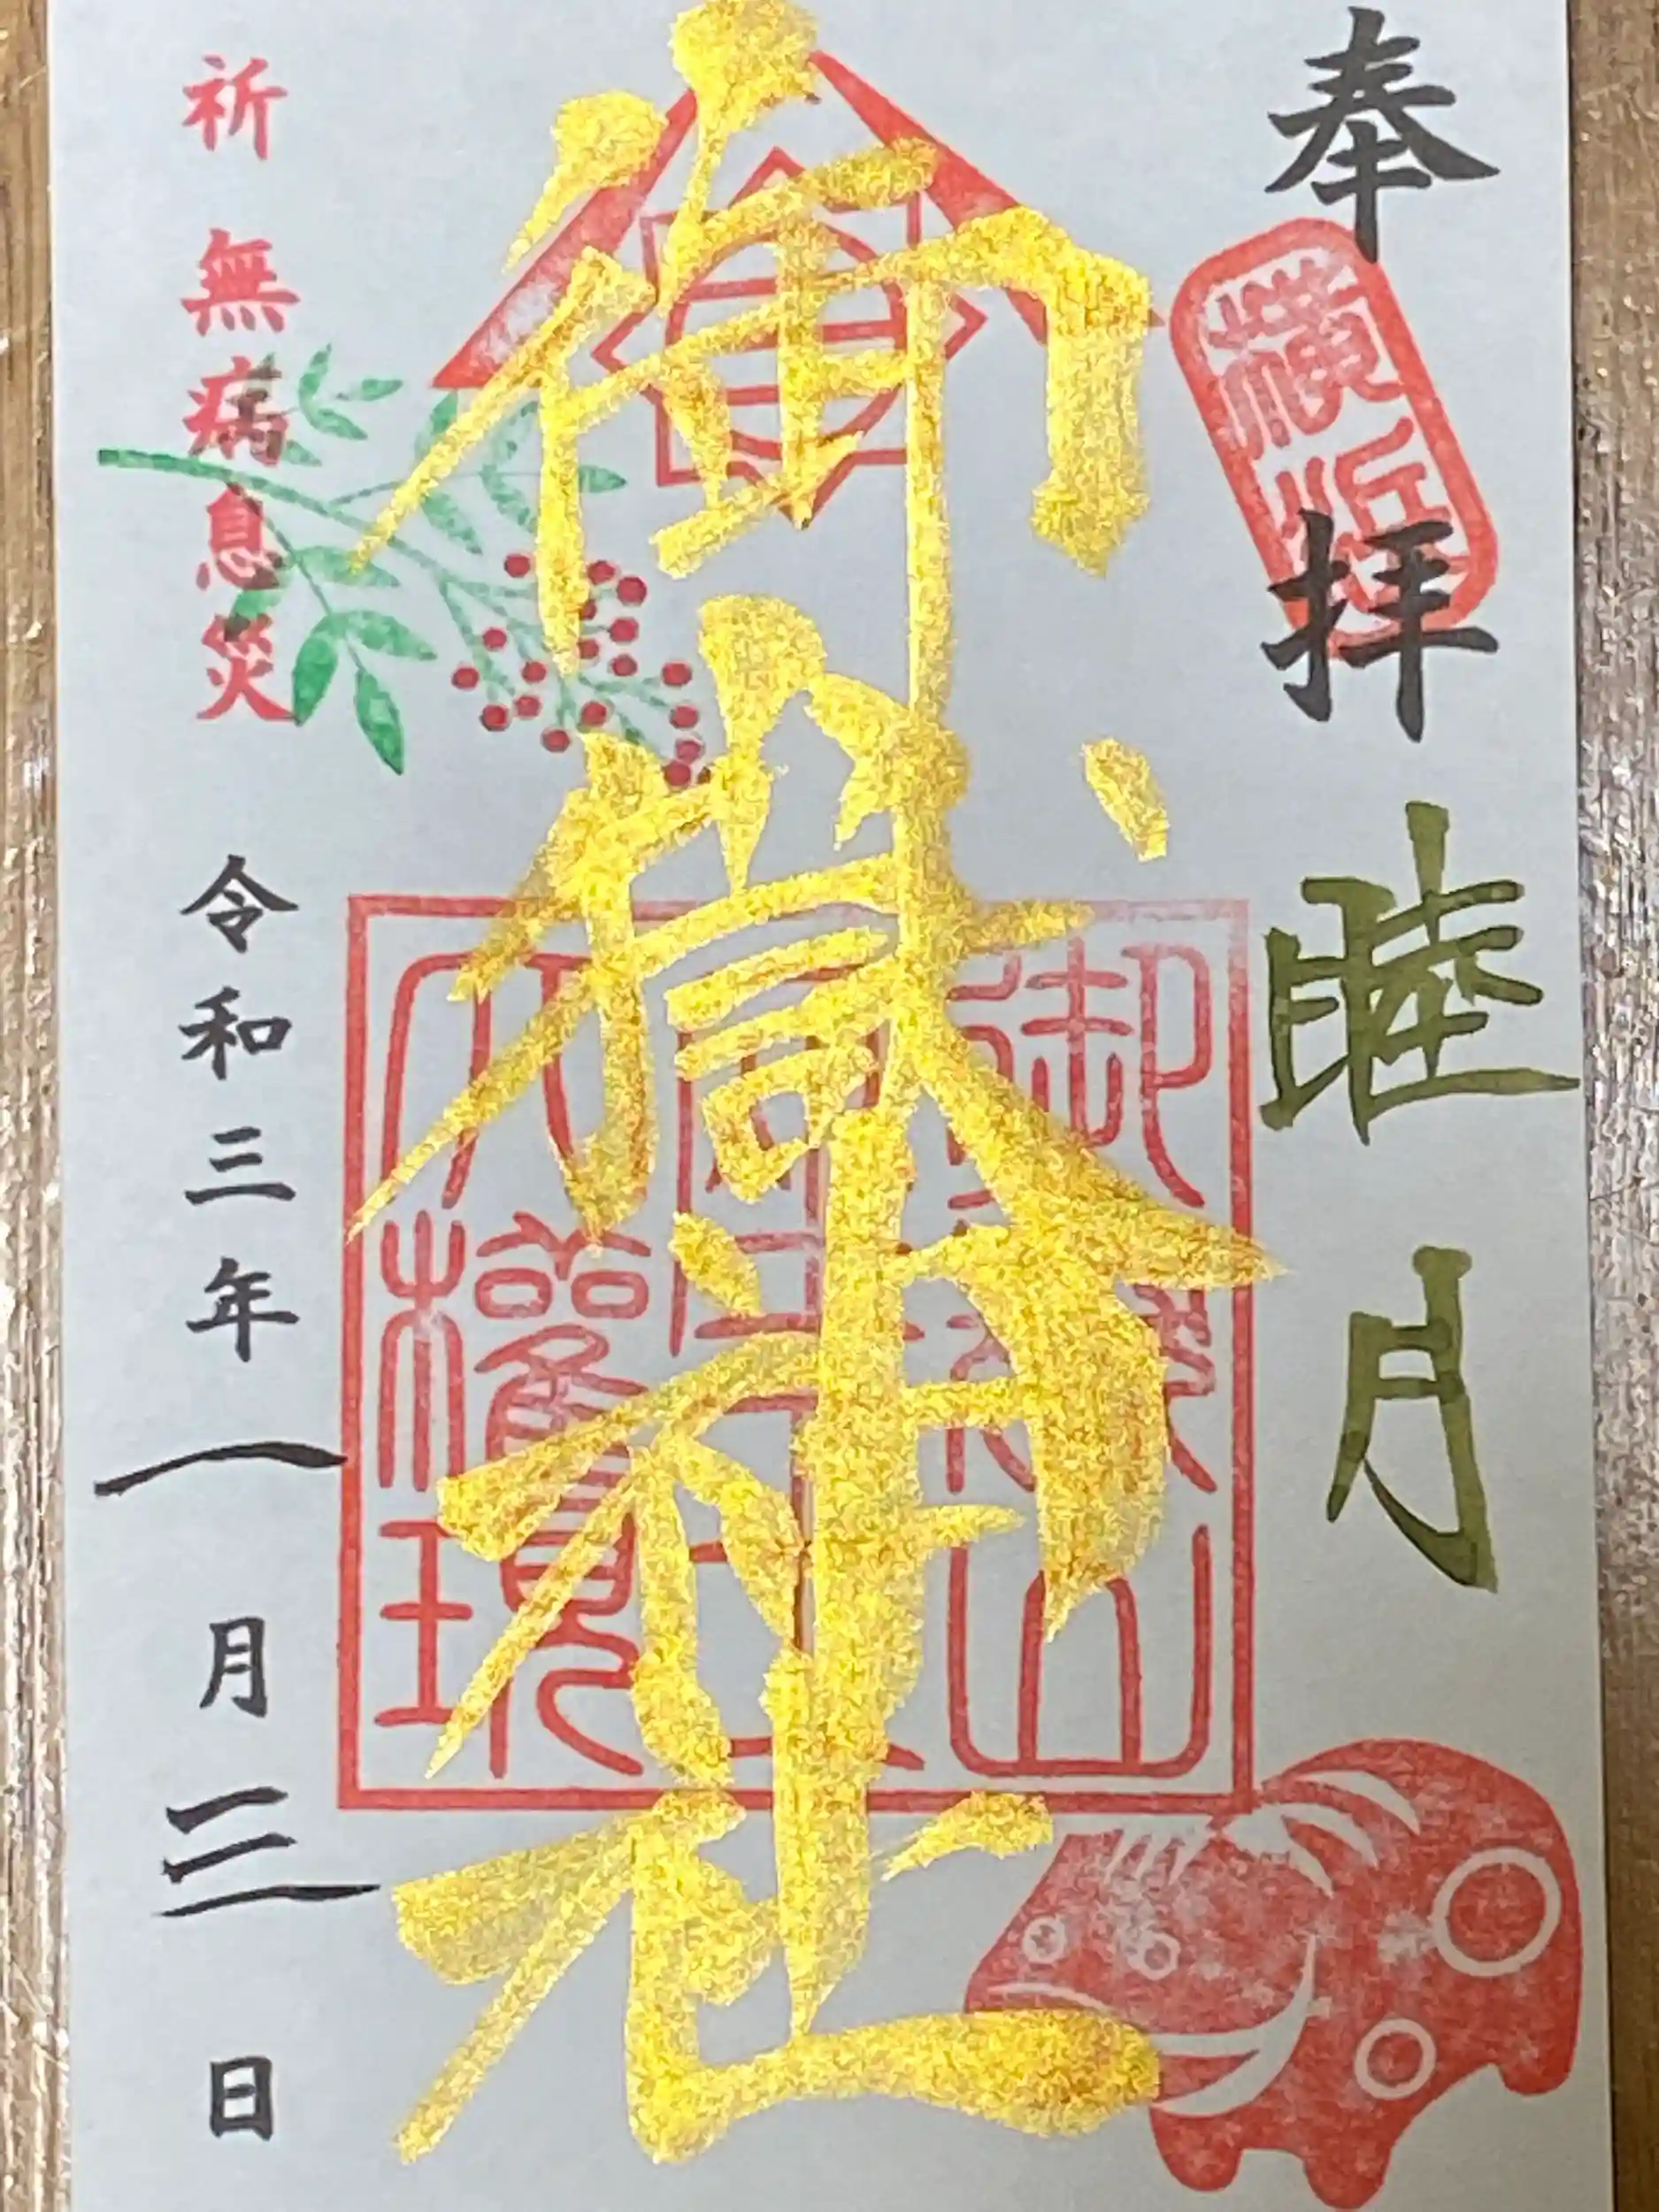 奉拝
横浜
睦月
御嶽神社
御嶽山
大権現
祈 無病息災
令和三年一月三日